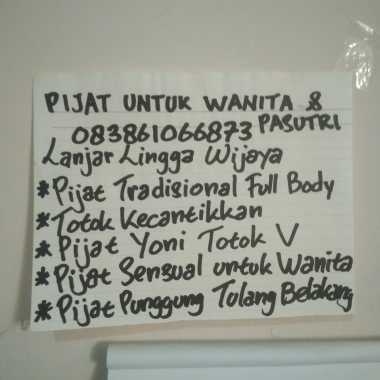 PIJAT UNTUK WANITA &
083861066873 PASUTRI
Lanjar Lingga Wijaya
*Pijat Tradisional Full Body
*Totok Kecantikkan
*Pijat Yoni Totok V
*Pijat Sensual untuk Wanita
*Pijat Punggung Tulang Belakang